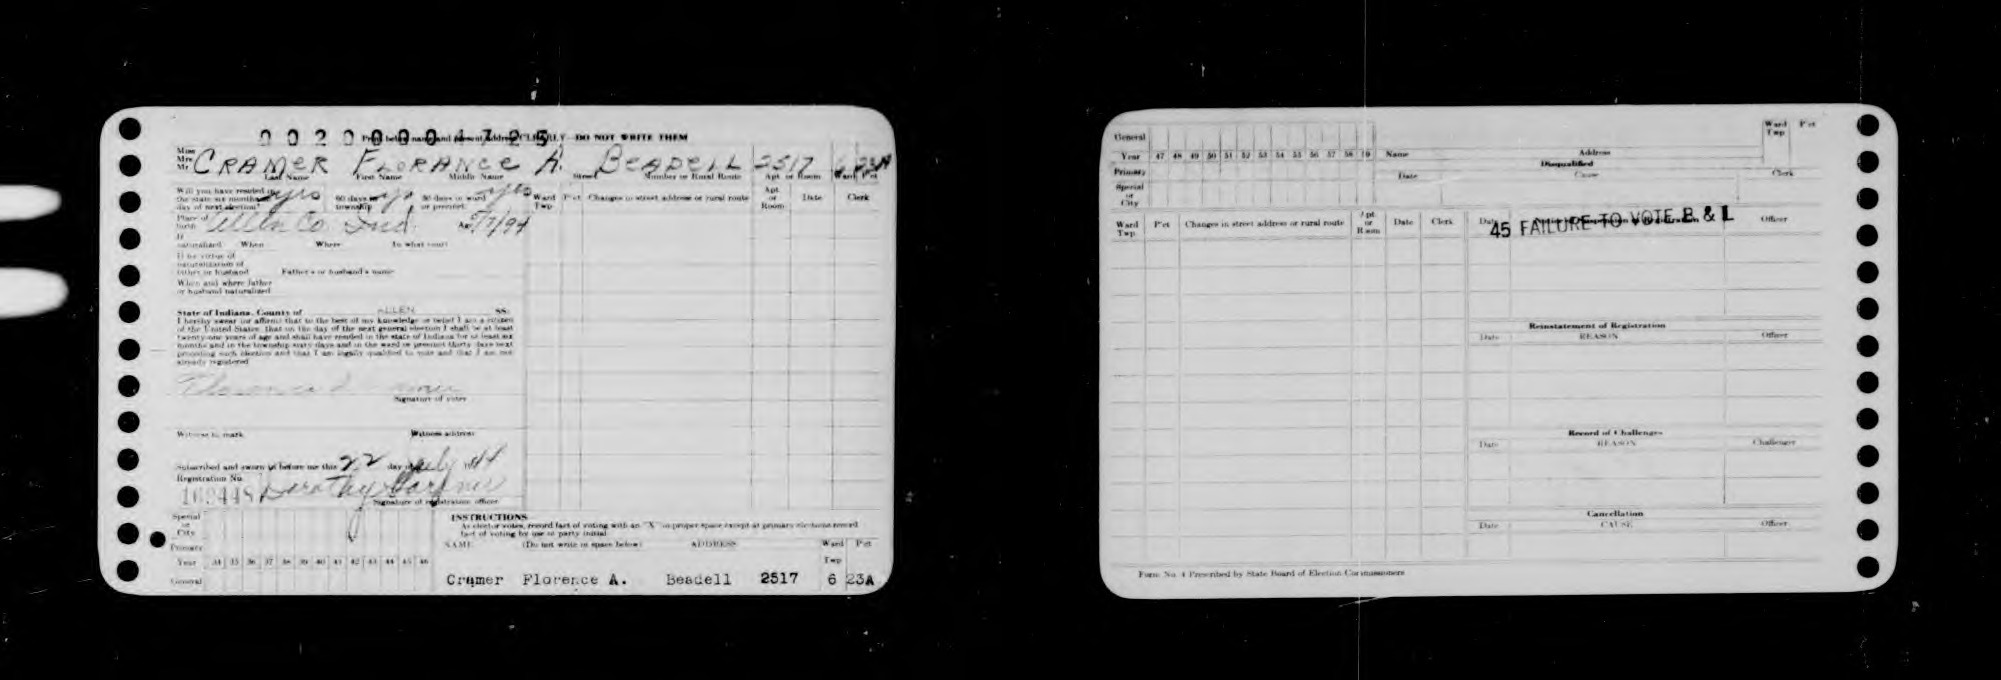 00200004725
Print below name and present address CLEARLY—DO NOT WRITE THEM
Miss
Mrs
Mr CRAMER FLORANCE A. BEADELL 2517 6 23A
Last Name First Name Middle Name Street Number or Rural Route Apt. or Room Ward Pct
Will you have resided in the state six months yes 60 days in township yes 30 days in ward or precinct yes
day of next election?
Ward Twp Pct Changes in street address or rural route Apt. or Room Date Clerk
Place of birth Allen Co. Ind. Age 5/7/94
If naturalized When Where In what court
If by virtue of
naturalization of
father or husband Father's or husband's name
When and where father
or husband naturalized
State of Indiana, County of ALLEN SS:
I hereby swear (or affirm) that to the best of my knowledge or belief I am a citizen
of the United States, that on the day of the next general election I shall be at least
twenty-one years of age and shall have resided in the state of Indiana for at least six
months and in the township sixty days and in the ward or precinct thirty days next
preceding such election and that I am legally qualified to vote and that I am not
already registered
Signature of voter
Witness to mark Witness address
Subscribed and sworn to before me this 22 day of July 1944
Registration No.
169448 Dorothy Gardner
Signature of registration officer
Special
or
City
Primary
Year 34 35 36 37 38 39 40 41 42 43 44 45 46
General
INSTRUCTIONS
As elector votes, record fact of voting with an "X" in proper space except at primary elections record
fact of voting by use of party initial
NAME (Do not write in space below) ADDRESS Ward Twp Pct
Cramer Florence A. Beadell 2517 6 23A
General
Year 47 48 49 50 51 52 53 54 55 56 57 58 59 Name Address Ward Twp Pct
Primary
Special
or
City
Disqualified
Date Cause Clerk
Ward Twp Pct Changes in street address or rural route Apt. or Room Date Clerk Date Officer
45 FAILURE TO VOTE B & L
Reinstatement of Registration
Date REASON Officer
Record of Challenges
Date REASON Challenger
Cancellation
Date CAUSE Officer
Form No. 4 Prescribed by State Board of Election Commissioners